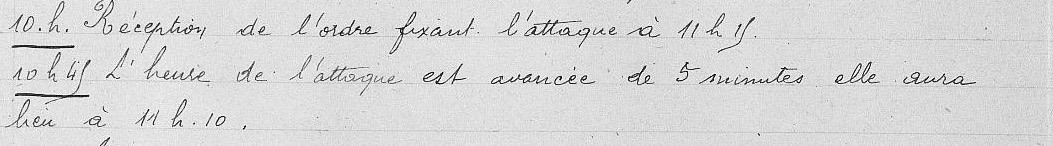 10.h. Réception de l'ordre fixant l'attaque à 11 h 15.
10 h 45 L'heure de l'attaque est avancée de 5 minutes elle aura
lieu à 11 h. 10.